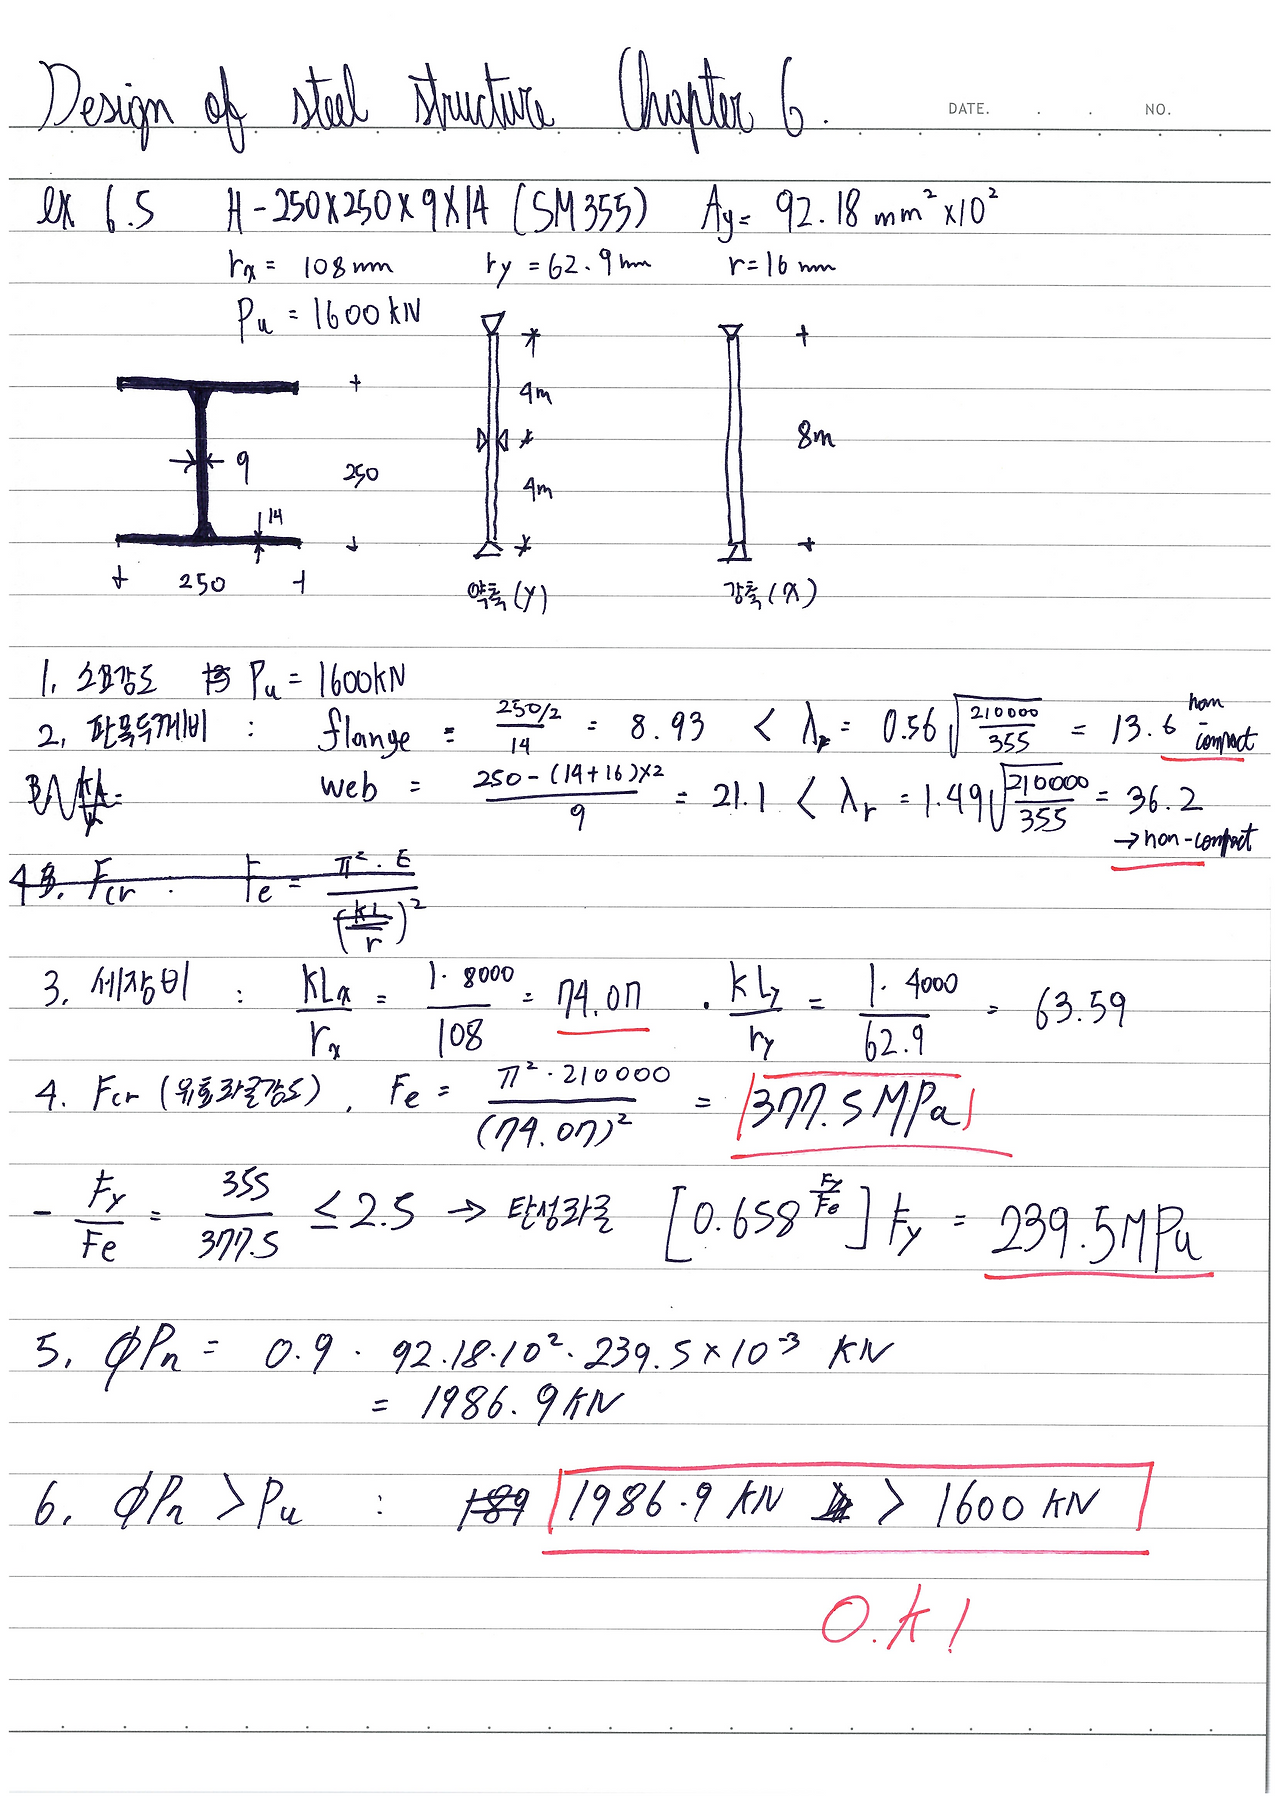 Design of steel structure Chapter 6.
DATE. . . NO.
ex 6.5 H-250x250x9x14 (SM355) Ag= 92.18 mm²x10²
rx = 108mm ry = 62.9mm r=16mm
Pu = 1600kN
4m
8m
9
250
4m
14
250
약축(y) 강축(x)
1. 소요강도 Pu = 1600kN
2. 판폭두께비 : flange = (250/2)/14 = 8.93 < λr = 0.56√(210000/355) = 13.6 non-compact
web = (250-(14+16)x2)/9 = 21.1 < λr = 1.49√(210000/355) = 36.2
→ non-compact
4. Fcr. Fe = π²·E/(kL/r)²
3. 세장비 : KLx/rx = 1·8000/108 = 74.07 . kLy/ry = 1·4000/62.9 = 63.59
4. Fcr (유효좌굴강도), Fe = π²·210000/(74.07)² = 377.5MPa
- Fy/Fe = 355/377.5 ≤ 2.5 → 탄성좌굴 [0.658^(Fy/Fe)] Fy = 239.5MPa
5. ΦPn = 0.9 · 92.18·10²·239.5x10⁻³ KN
= 1986.9KN
6. ΦPn > Pu : 189 1986.9 KN > 1600 KN
O.K!